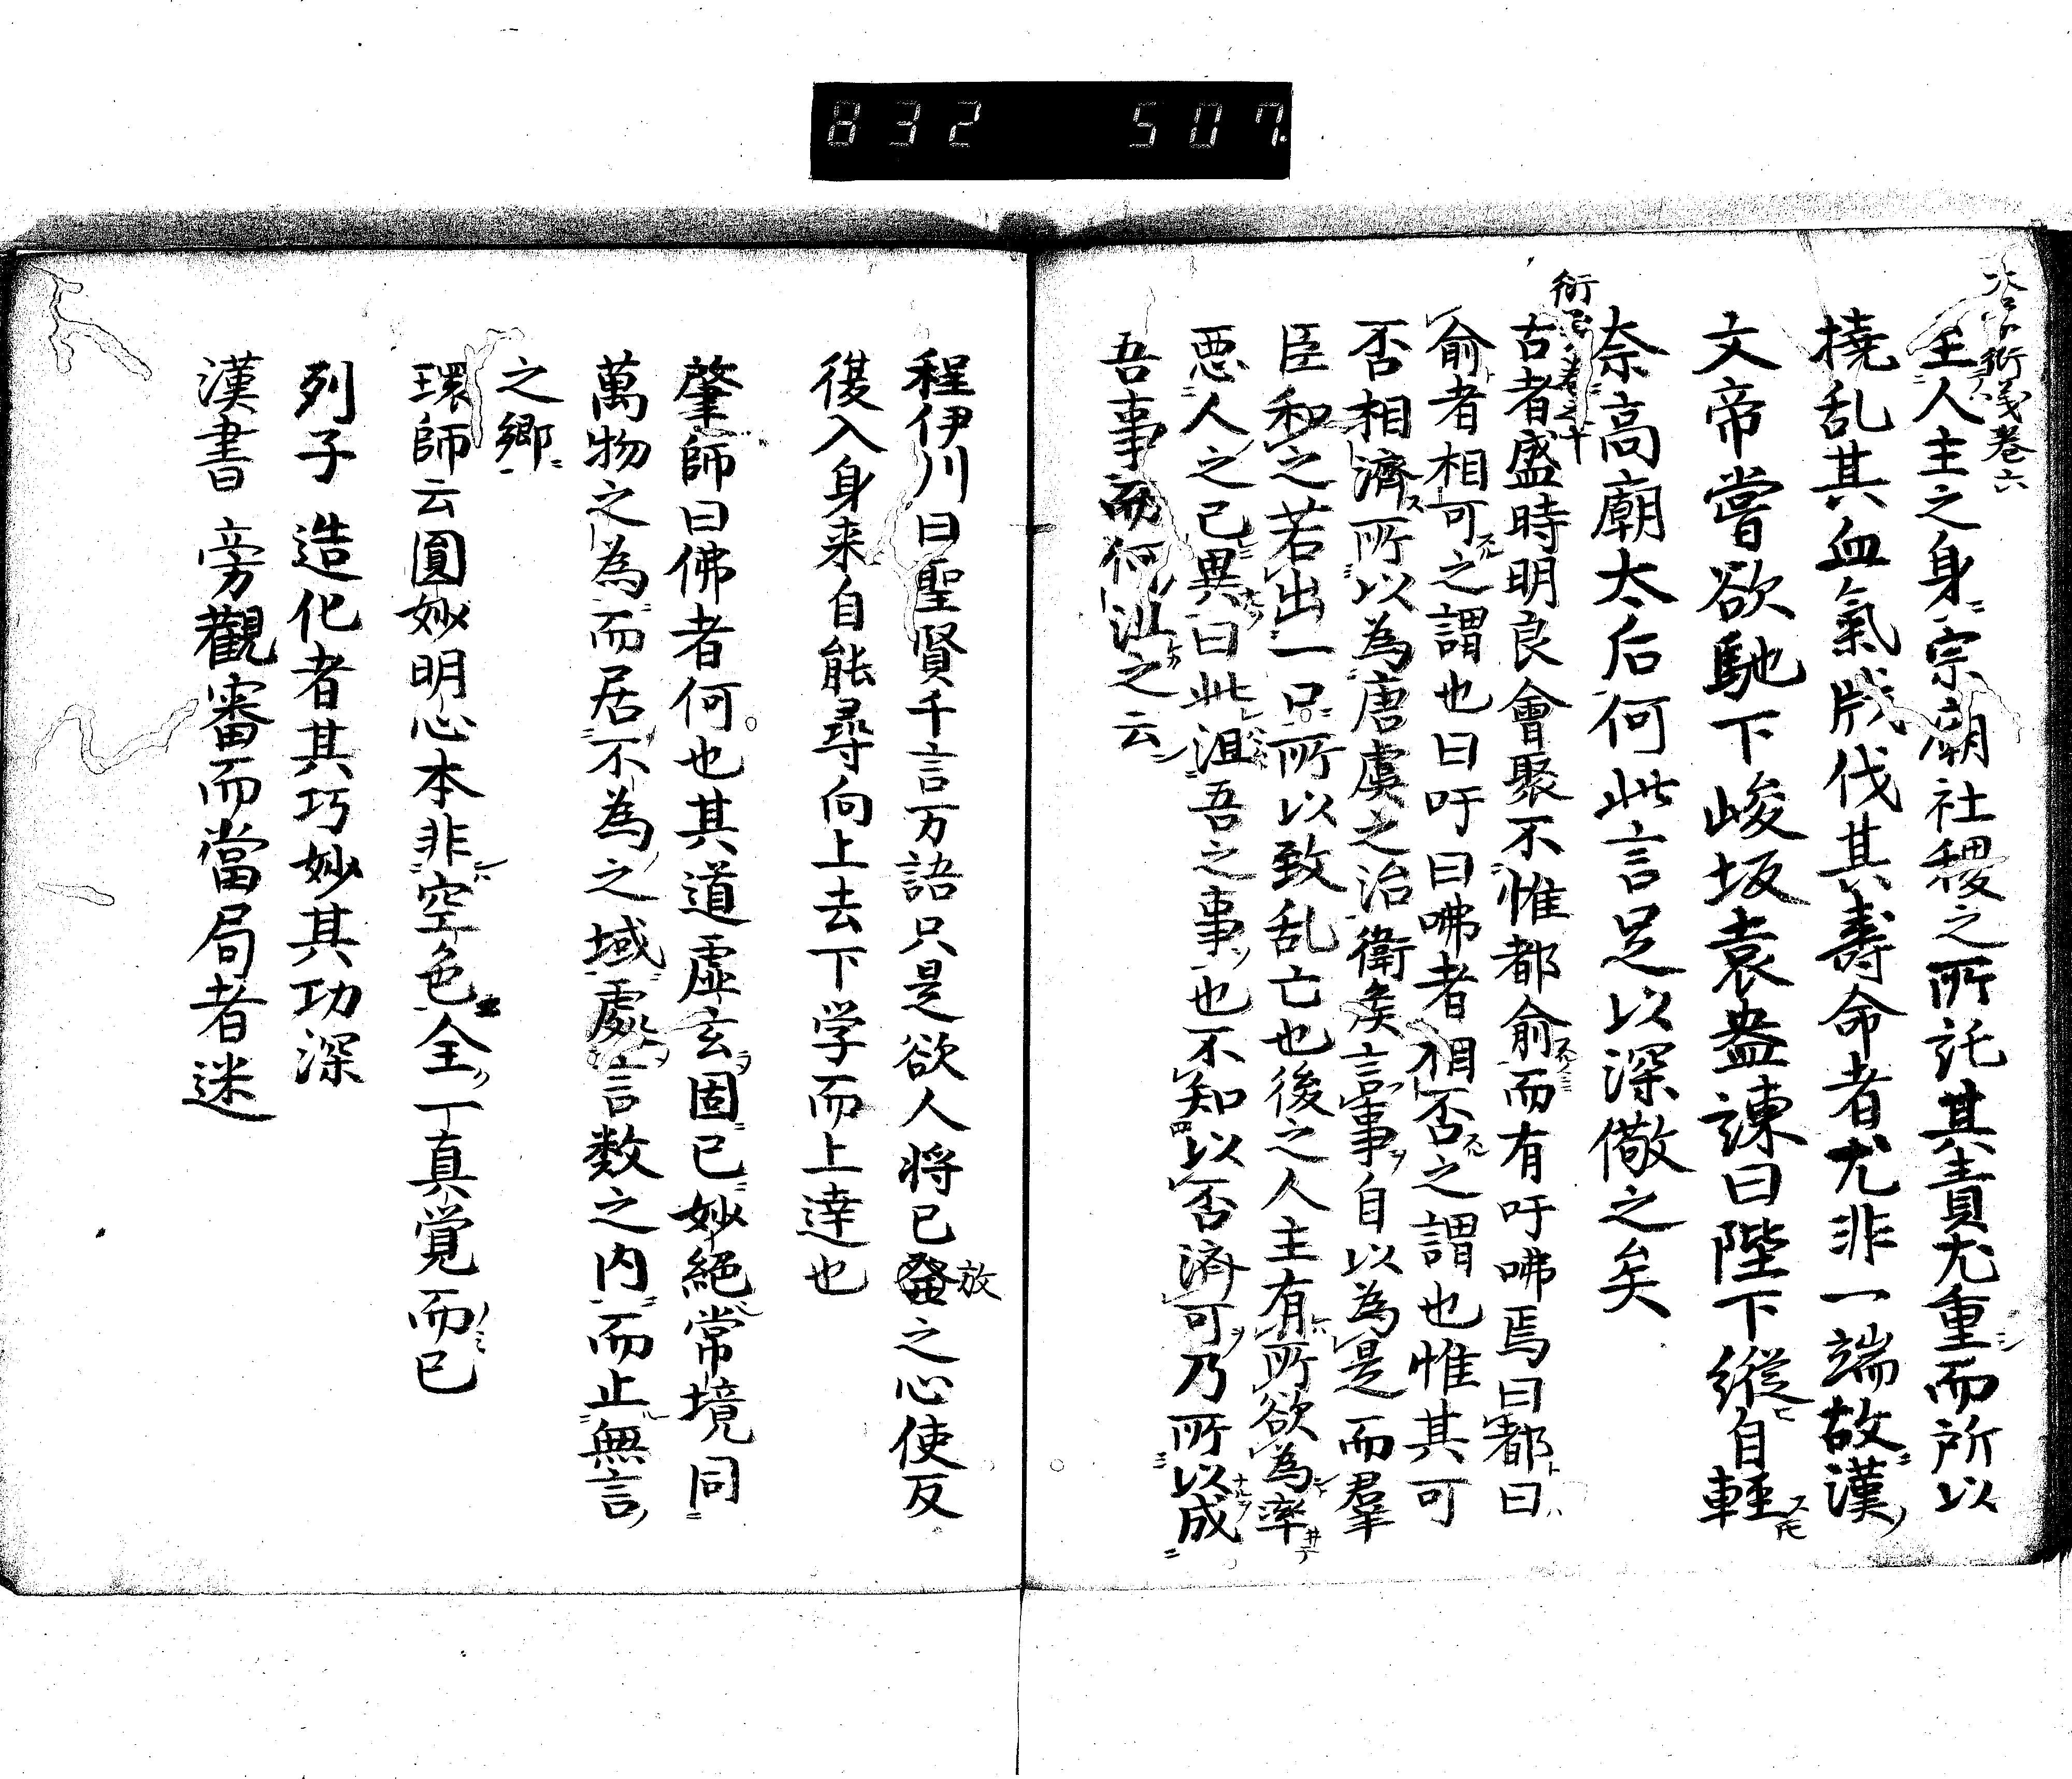 832 507
衍義卷六
主人主之身宗廟社稷之所託其責尤重而所以
撓乱其血氣戕伐其壽命者尤非一端故漢
文帝嘗欲馳下峻坂袁盎諌曰陛下縱自輕
奈高廟太后何此言足以深儆之矣
古者盛時明良會聚不惟都俞而有吁咈焉曰都曰
俞者相可之謂也曰吁曰咈者相否之謂也惟其可
否相濟所以為唐虞之治衛矦言事自以為是而羣
臣和之若出一口所以致乱亡也後之人主有所欲為率
悪人之己異曰此沮吾之事也不知以否済可乃所以成
吾事而何沮之云
程伊川曰聖賢千言万語只是欲人将已發之心使反
放
復入身来自能尋向上去下学而上達也
肇師曰佛者何也其道虚玄固已妙絕常境同
萬物之為而居不為之域處言数之内而止無言
之郷
環師云圓妙明心本非空色全一真覚而已
列子 造化者其巧妙其功深
漢書 旁觀審而當局者迷